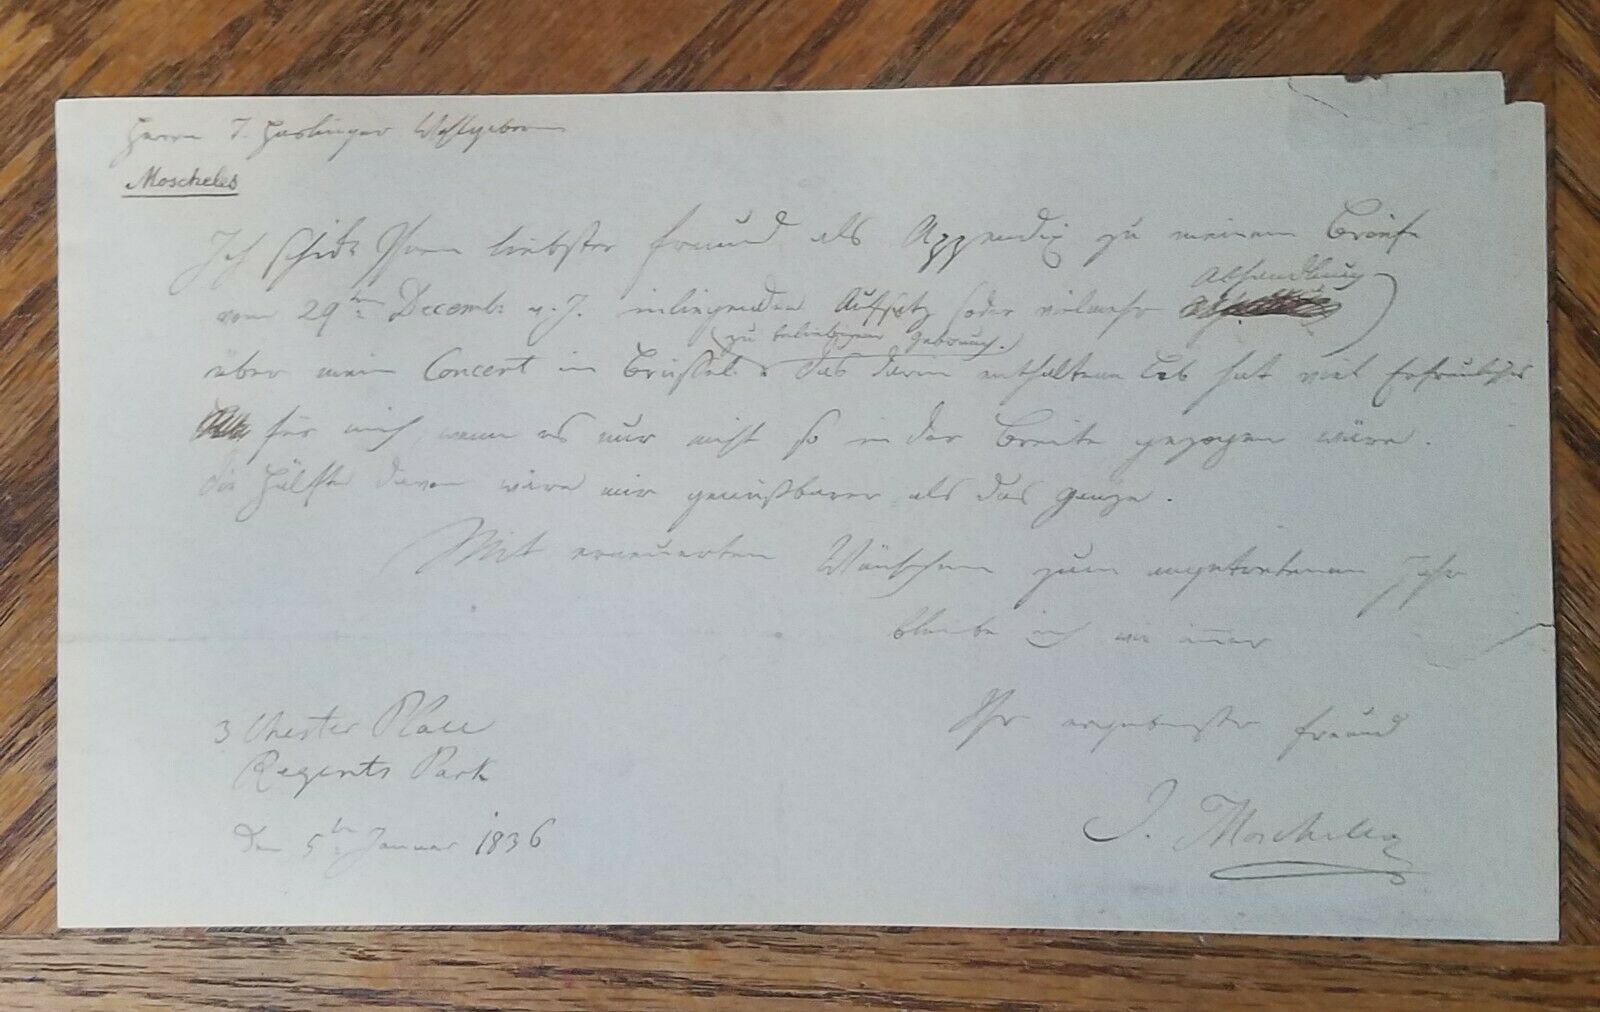 Herrn T. Haslinger Wohlgeborn
Moscheles
Ich schicke Ihnen liebster Freund als Appendix zu meinem Briefe
Abhandlung
vom 29ten Decemb: v. J. inliegenden Aufsatz (oder vielmehr )
(zu beliebigem Gebrauch.)
über mein Concert in Brüssel. Das darin enthaltene Lob hat viel Erfreuliches
für mich, wenn es nur nicht so in der Breite gezogen wäre.
die Hälfte davon wäre mir genießbarer als das Ganze.
Mit erneuerten Wünschen zum angetretenen Jahr
bleibe ich wie immer
Ihr ergebenster Freund
J. Moscheles
3 Chester Place
Regents Park
den 5ten Januar 1836